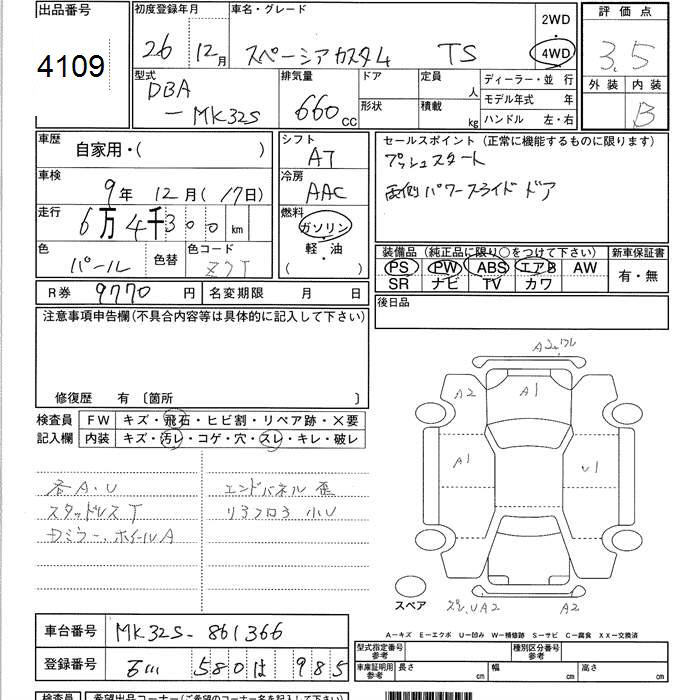 出品番号
4109
初度登録年月
26 12月
車名・グレード
スペーシアカスタム TS
2WD
4WD
評価点
3.5
外装 内装
B
型式
DBA
-MK32S
排気量
660cc
ドア
形状
定員
人
積載
kg
ディーラー・並行
モデル年式 年
ハンドル 左・右
車歴
自家用・( )
車検
9年 12月 (17日)
走行
6万4千300 km
色
パール
色替
色コード
Z7T
シフト
AT
冷房
AAC
燃料
ガソリン
軽・油
( )
セールスポイント (正常に機能するものに限ります)
プッシュスタート
両側パワースライドドア
装備品 (純正品に限り○をつけて下さい)
PS PW ABS エアB AW
SR ナビ TV カワ
新車保証書
有・無
R券 9770円
名変期限 月 日
後日品
注意事項申告欄(不具合内容等は具体的に記入して下さい)
修復歴 有 〔箇所 〕
検査員
記入欄
FW キズ・飛石・ヒビ割・リペア跡・×要
内装 キズ・汚レ・コゲ・穴・スレ・キレ・破レ
各A.U
スタッドレスT
Dミラー、ホイールA
エンドパネル歪
リアフロア小U
A2,ワレ
A2
A1
A1
U1
スペア
ズレ,UA2
A2
A-キズ E-エクボ U-凹み W-補修跡 S-サビ C-腐食 XX-交換済
車台番号 MK32S-861366
登録番号 580は 985
型式指定番号
参考
種別区分番号
参考
車庫証明用
参考
長さ cm
幅 cm
高さ cm
検査員
希望出品コーナー(ご希望のコーナー名を記入して下さい)